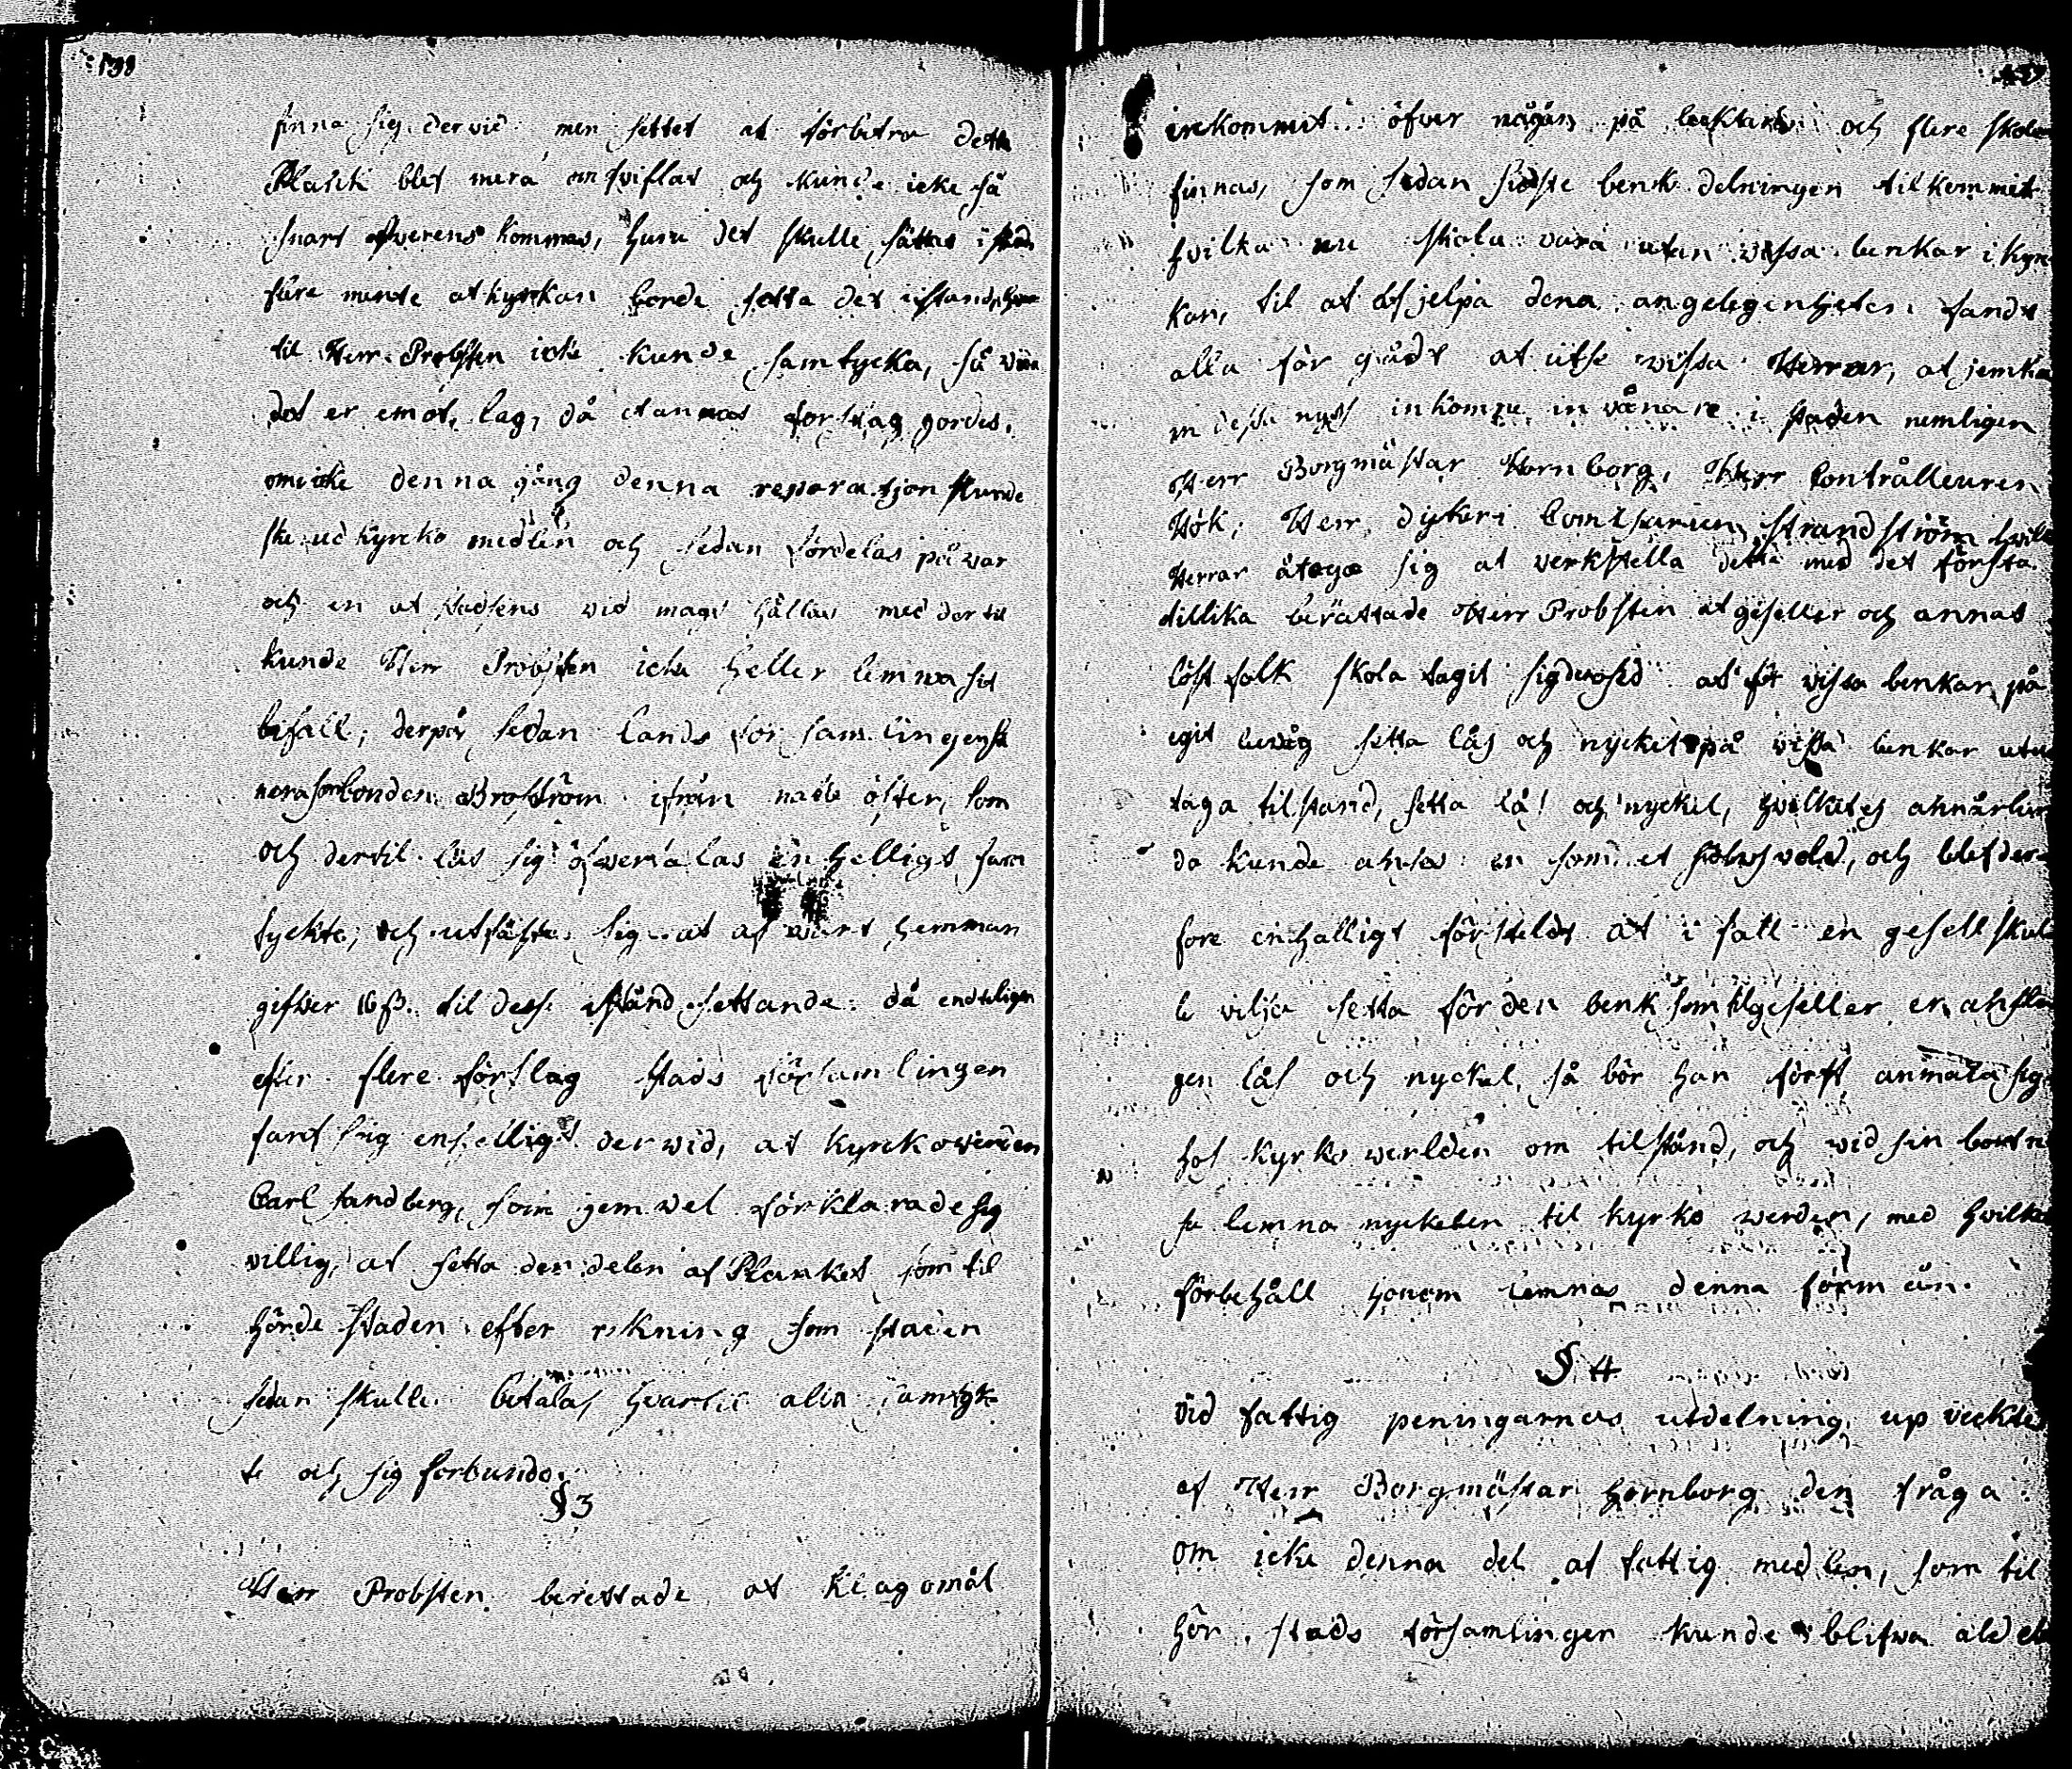 138
finna sig dervid, men settet at förbetra detta
Plank blef mera omtviflat och kunde icke så
snart öfverens kommas, huru det skulle sättas i stånd
flere mente at kyrkan borde setta det i stånd, hvar
til Herr Probsten icke kunde samtycka, så vida
det er emot lag, då et annat förslag gordes,
om icke denna gång denna reparation kunde
ske ud kyrcko medlen och sedan fördelas på var
och en at stadsens vid magt hållas med der til
kunde Herr Probsten icke heller lemna sit
bifall, derpå sedan lands församlingens
bonden Broström ifrån öster, som
och dertil lås sig öfvertalas enhelligt sam
tyckte, och utfäste sig at af vart hemman
gifver 16 ß. til dess istånd settande. då endteligen
efter flere förslag stads församlingen
fant sig enhelligt der wid, at kyrckoverden
Carl Sandberg, som jemvel förklarade sig
villig, at setta den delen af Planket som til
hörde staden efter rekning som staden
sedan skulle betala, hvartil alla samtyk
te och sig forbundo.
§ 3
Herr Probsten berettade at klagomål
139
inkommit öfver någon på lecktaren och flere skola
finnas, som sedan sidste benk delningen tilkommit
hvilka nu skola vara utan vissa benkar i kyrc
kan, til at afhjelpa dena angelegenheten fandt
alla för gådt at utse vissa Herrar, at jemka
in dessa nyss inkomne invånare i staden nemligen
Herr Borgmästar Hornborg, Herr Contrålleuren
Hök, Herr dykeri Commissarien Strandström hvilka
Herrar åtogo sig at verkställa detta med det första.
tillika berättade Herr Probsten at geseller och annat
löst folk skola tagit sig at för vissa benkar på
egit bevåg setta lås och nyckel på vissa benkar utan
taga tilstand, setta lås och nyckel, hvilket ej annårlun
da kunde anses en som et sielfsvold, och blef der
fore enhälligt förstelt at i fall en gesell skul
le vilja setta för den benk som til geseller er anfla
gen lås och nyckel, så bör han först anmäla sig
hos kyrko werden om tilstånd, och wid sin bort
se lemna nyckelen til kyrko werden, med hvilket
förbehåll honom lemnas denna förmån.
§ 4
Vid fattig peningarnas utdelning, up vecktes
af Herr Borgmästar Hornborg den fråga
om icke denna del af fattig medlen, som til
hör stads församlingen kunde blifva